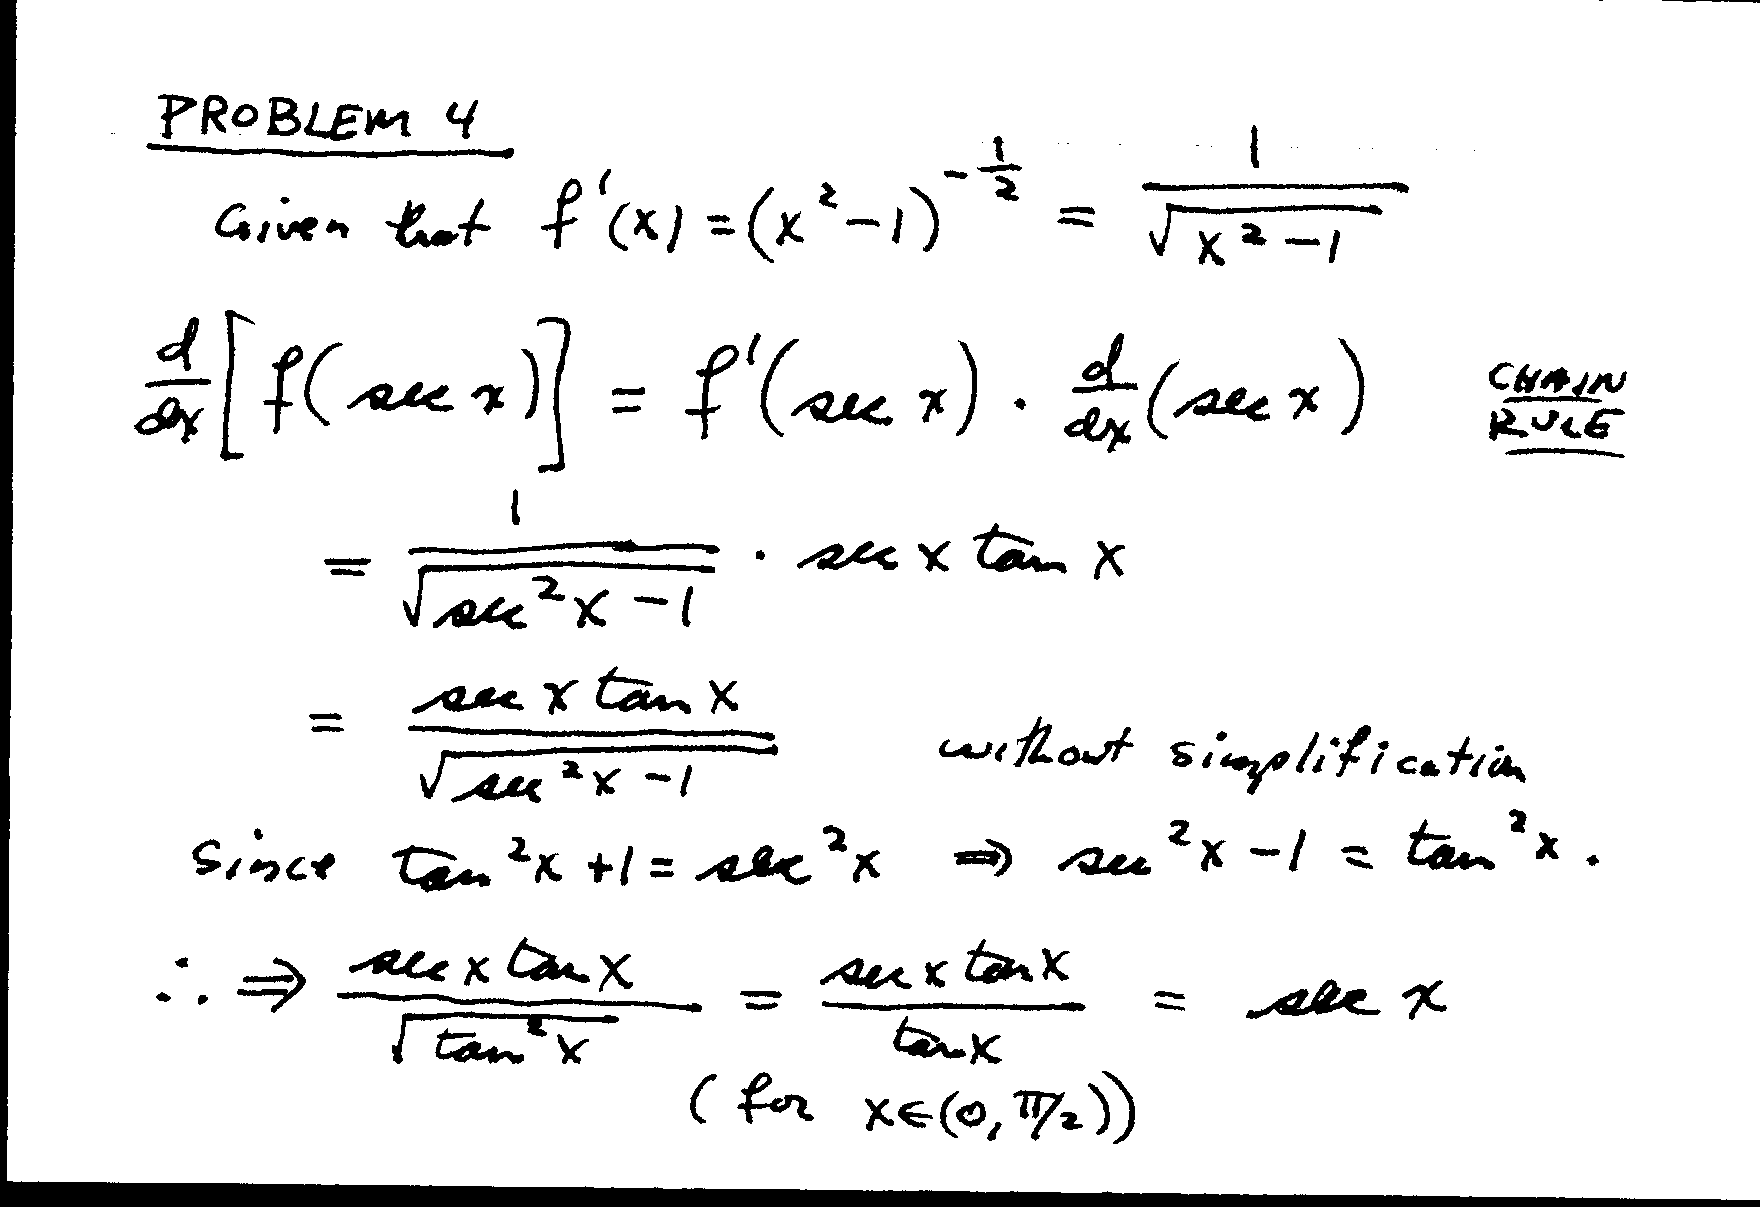 PROBLEM 4
Given that f'(x) = (x²-1)^(-1/2) = 1/√(x²-1)
d/dx [f(sec x)] = f'(sec x) · d/dx (sec x) CHAIN RULE
= 1/√(sec²x-1) · sec x tan x
= sec x tan x/√(sec²x-1) without simplification
Since tan²x+1 = sec²x ⇒ sec²x-1 = tan²x.
∴ ⇒ sec x tan x/√(tan²x) = sec x tan x/tan x = sec x
(for x∈(0, π/2))